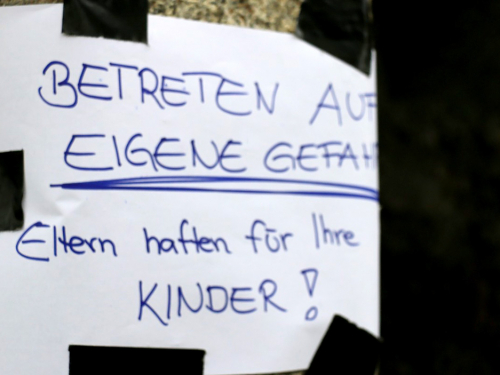 BETRETEN AUF
EIGENE GEFAH
Eltern haften für Ihre
KINDER!